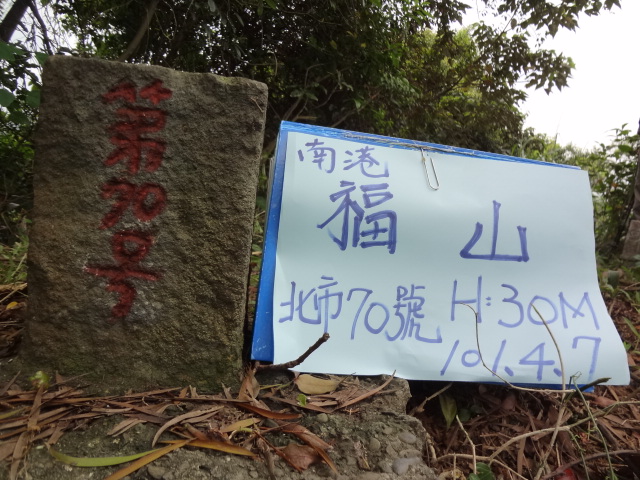 第70号
南港
福山
北市70號 H:30M
101.4.7